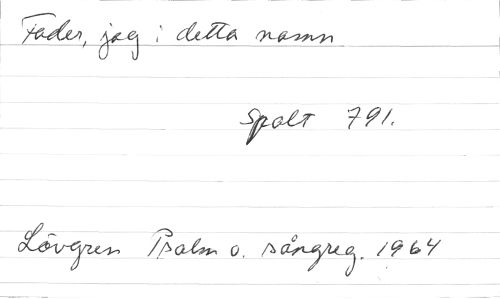 Fader, jag i detta namn
Spalt 791.
Lövgren Psalm o. sångreg. 1964